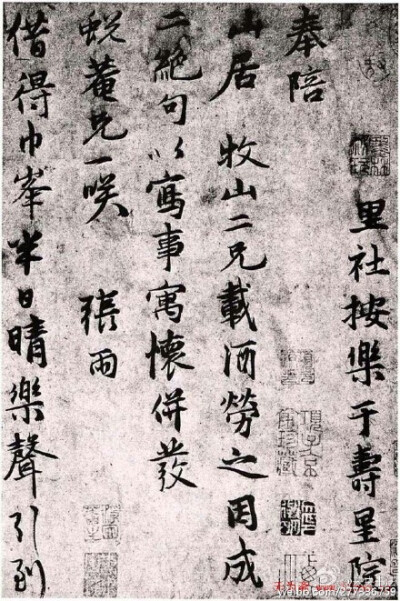 里社按樂于壽星院
奉陪
山居 牧山二兄載酒勞之因成
二絕句以寫事寓懷併發
蛻菴兄一咲 張雨
借得巾峯半日晴樂聲引到